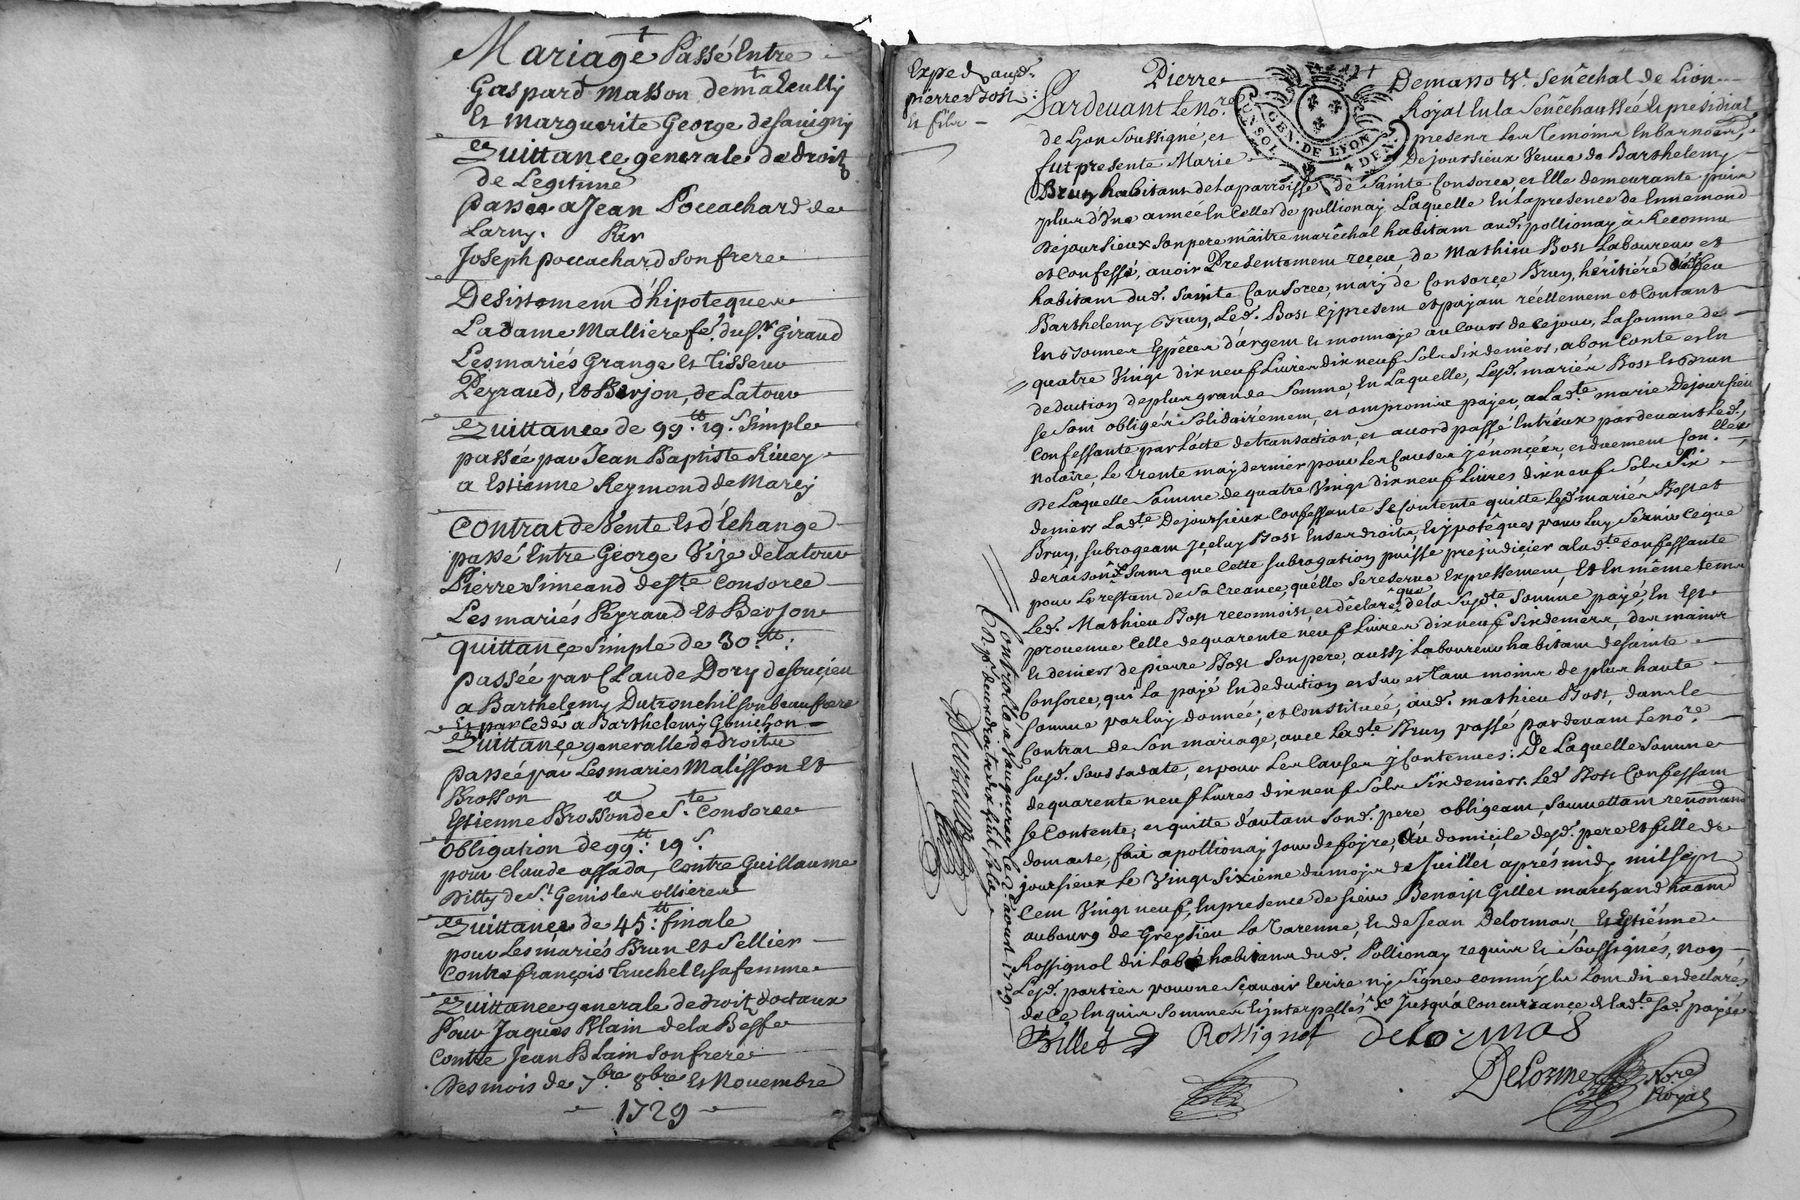 †
Mariage Passé Entre
Gaspard Masson
Et Marguerite George de Savigny
Quittance generale de droit
de Legitime
passée a Jean Poccachard de
Larny. Par
Joseph poccachard son frere
Desistement d'hipoteque
La dame Malliere fe. du Sr. Giraud
Les mariés Grange Et Tisseur
Peyraud, Et Berjon, de Latour
Quittance de 99.tt 19.s Simple
passée par Jean Baptiste Rivey
a Estienne Reymond de Marcy
Contrat de Vente Et d'Echange
passé Entre George Vize de latour
Pierre Simeand de Ste. Consorce
Les mariés Peyraud Et Berjon
quittance Simple de 30.tt
passée par Claude Dory de Soucieu
a Barthelemy Dutronchil son beaufrere
Et par Cede a Barthelemy Gouichon
Quittance generalle de droits
passée par Les maries Malisson Et
Brosson a
Estienne Brosson de Ste. Consorce
Obligation de 99.tt 19.s
pour Claude assada, Contre Guillaume
Pitty de St. Genis les ollieres
Quittance de 45.tt finale
pour Les mariés Brun Et Sellier
Contre françois Truchel Et sa femme
Quittance generale de droits
Pour Jaques Blain de la Beffe
Contre Jean Blain son frere
Des mois de 7bre 8bre Et Novembre
1729
Exped. aud.
pierre Bost
Et fils
Pierre Demasso Sénéchal de Lion
GEN. DE LYON
Pardevant le no.re Royal En la Sénéchaussée Et presidial
de Lyon Soussigné, et present les Temoins En bas nommés,
fut presente Marie Dejoursieux Veuve de Barthelemy
Brun habitant de la parroisse de Sainte Consorce et Elle demeurante puis
plus d'Une année En Celle de pollionay Laquelle En la presence de Ennemond
Dejoursieux son pere maître maréchal habitant aud. pollionay à Reconnu
et Confessé, avoir Presentement reçeu, de Mathieu Bost Laboureur et
habitant dud. Sainte Consorce, mary de Consorce Brun, héritiére de feu
Barthelemy Brun, Led. Bost Cy present et payant réellement et Contant
En bonnes Espéces d'argent et monnoye au Cours de Ce jour, La Somme de
quatre Vingt dix neuf Livres dix neuf Sols Six deniers, a bon Conte et En
deduction de plus grande Somme, En Laquelle, Lesd. mariés Bost et Brun
se Sont obligés Solidairément, et ont promis payer, a Lad.te marie Dejoursieu
Confessante par L'acte de transaction et accord passé Entr'eux par devant Led.
notaire, Le Trente may dernier pour Les Causes y énoncées, et duement Con.llé
De Laquelle Somme de quatre Vingt dix neuf Livres dix neuf Sols Six
deniers Lad.te Dejoursieux Confessante Se Contente quitte Lesd. mariés Bost et
Brun, Subrogeant Iceluy Bost En Ses droits, Et ypotéques pour Luy Servir Ce que
de raison Sans que Cette Subrogation puisse prejudicier a lad.te Confessante
pour Le restant de Sa Creance, quélle Se reserve Expressement, Et En même tems
Led. Mathieu Bost reconnoit, et déclare que de la Susd.te Somme payé, En Est
provenue Celle de quarente neuf Livres dix neuf Six deniers, des mains
Et deniers de pierre Bost Son pére, aussy Laboureur habitant de Sainte
Consorce, qui La payé En deduction et Sur Et Tant moins de plus haute
Somme par luy donnée, et Constituée, aud. Mathieu Bost, dans Le
Contrat de Son mariage, avec Lad.te Brun passé par devant Le no.re
Susd. Sous Sa date, et pour Les Causes y Contenues: De Laquelle Somme
de quarente neuf Livres dix neuf Sols Six deniers Led. Bost Confessant
Se Contente, et quitte d'autant Sond. pere, obligeant, Soumettant renonçant
dont acte, fait a pollionay jour de foire, au domicile desd. pere Et fille de
joursieux Le Vingt Sixieme du mois de Juillet aprés midy mil Sept
Cent Vingt neuf, En presence de Sieur Benoist Gillet marchand
au bourg de Grezieu La Varenne, Et de Jean Delormas, Et Estienne
Rossignol habitans dud. Pollionay requis Et Soussignés, non
Lesd. parties pour ne Sçavoir Ecrire ny Signer comm'ils L'ont dit et declaré
de Ce Enquis Sommés Et interpellés Jusqu'a Concurrance de lad.te Sod. payée
Gillet Rossignol delormas
Delorme No.re
Royal
Controllé a Vaugneray le 2.e aoust 1729